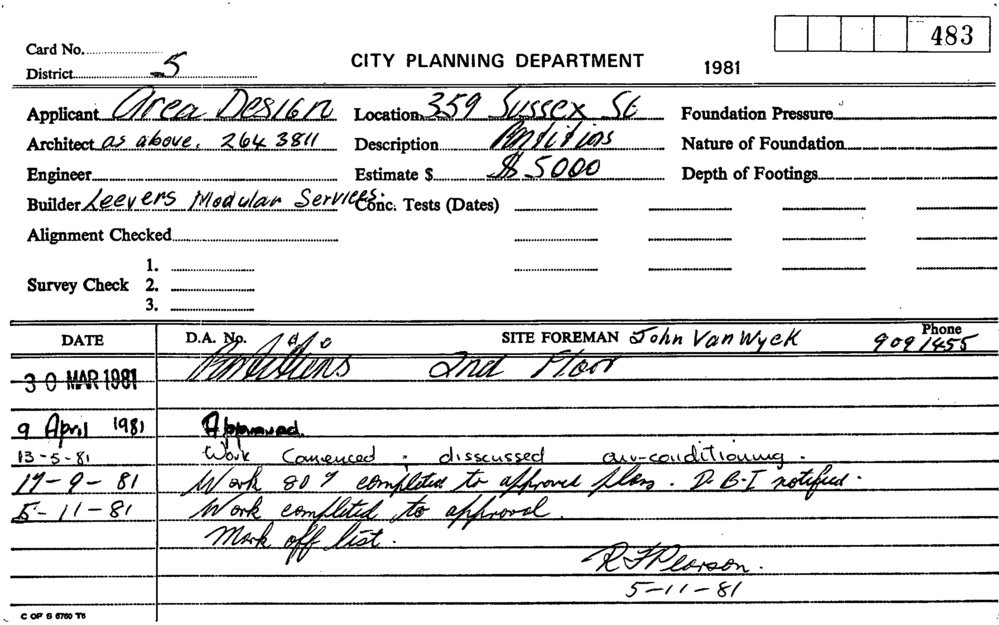 483
Card No.
CITY PLANNING DEPARTMENT 1981
District 5
Applicant Area Design Location 359 Sussex St Foundation Pressure
Architect as above. 264 3811 Description Partitions Nature of Foundation
Engineer Estimate $ $5000 Depth of Footings
Builder Leevers Modular Services. Conc. Tests (Dates)
Alignment Checked
1.
Survey Check 2.
3.
DATE D.A. No. SITE FOREMAN John Van Wyck Phone 909 1455
30 MAR 1981 Partitions 2nd Floor
9 April 1981 Approved.
13-5-81 Work Comenced . disscussed air-conditioning.
17-9-81 Work 80% completed to approved plan. D.B.I notified.
5-11-81 Work completed to approval.
Mark off list.
R F Pearson.
5-11-81
C OF S 6760 T6